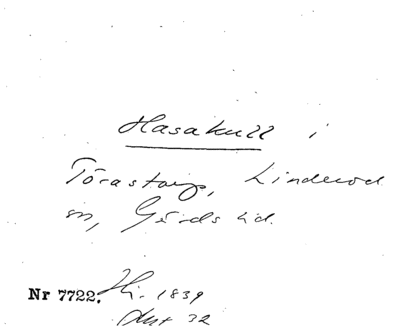 Hasakull i
Törastorp, Linderöd
sn, Gärds hd.
Nr 7722. Hi. 1839
Akt 32